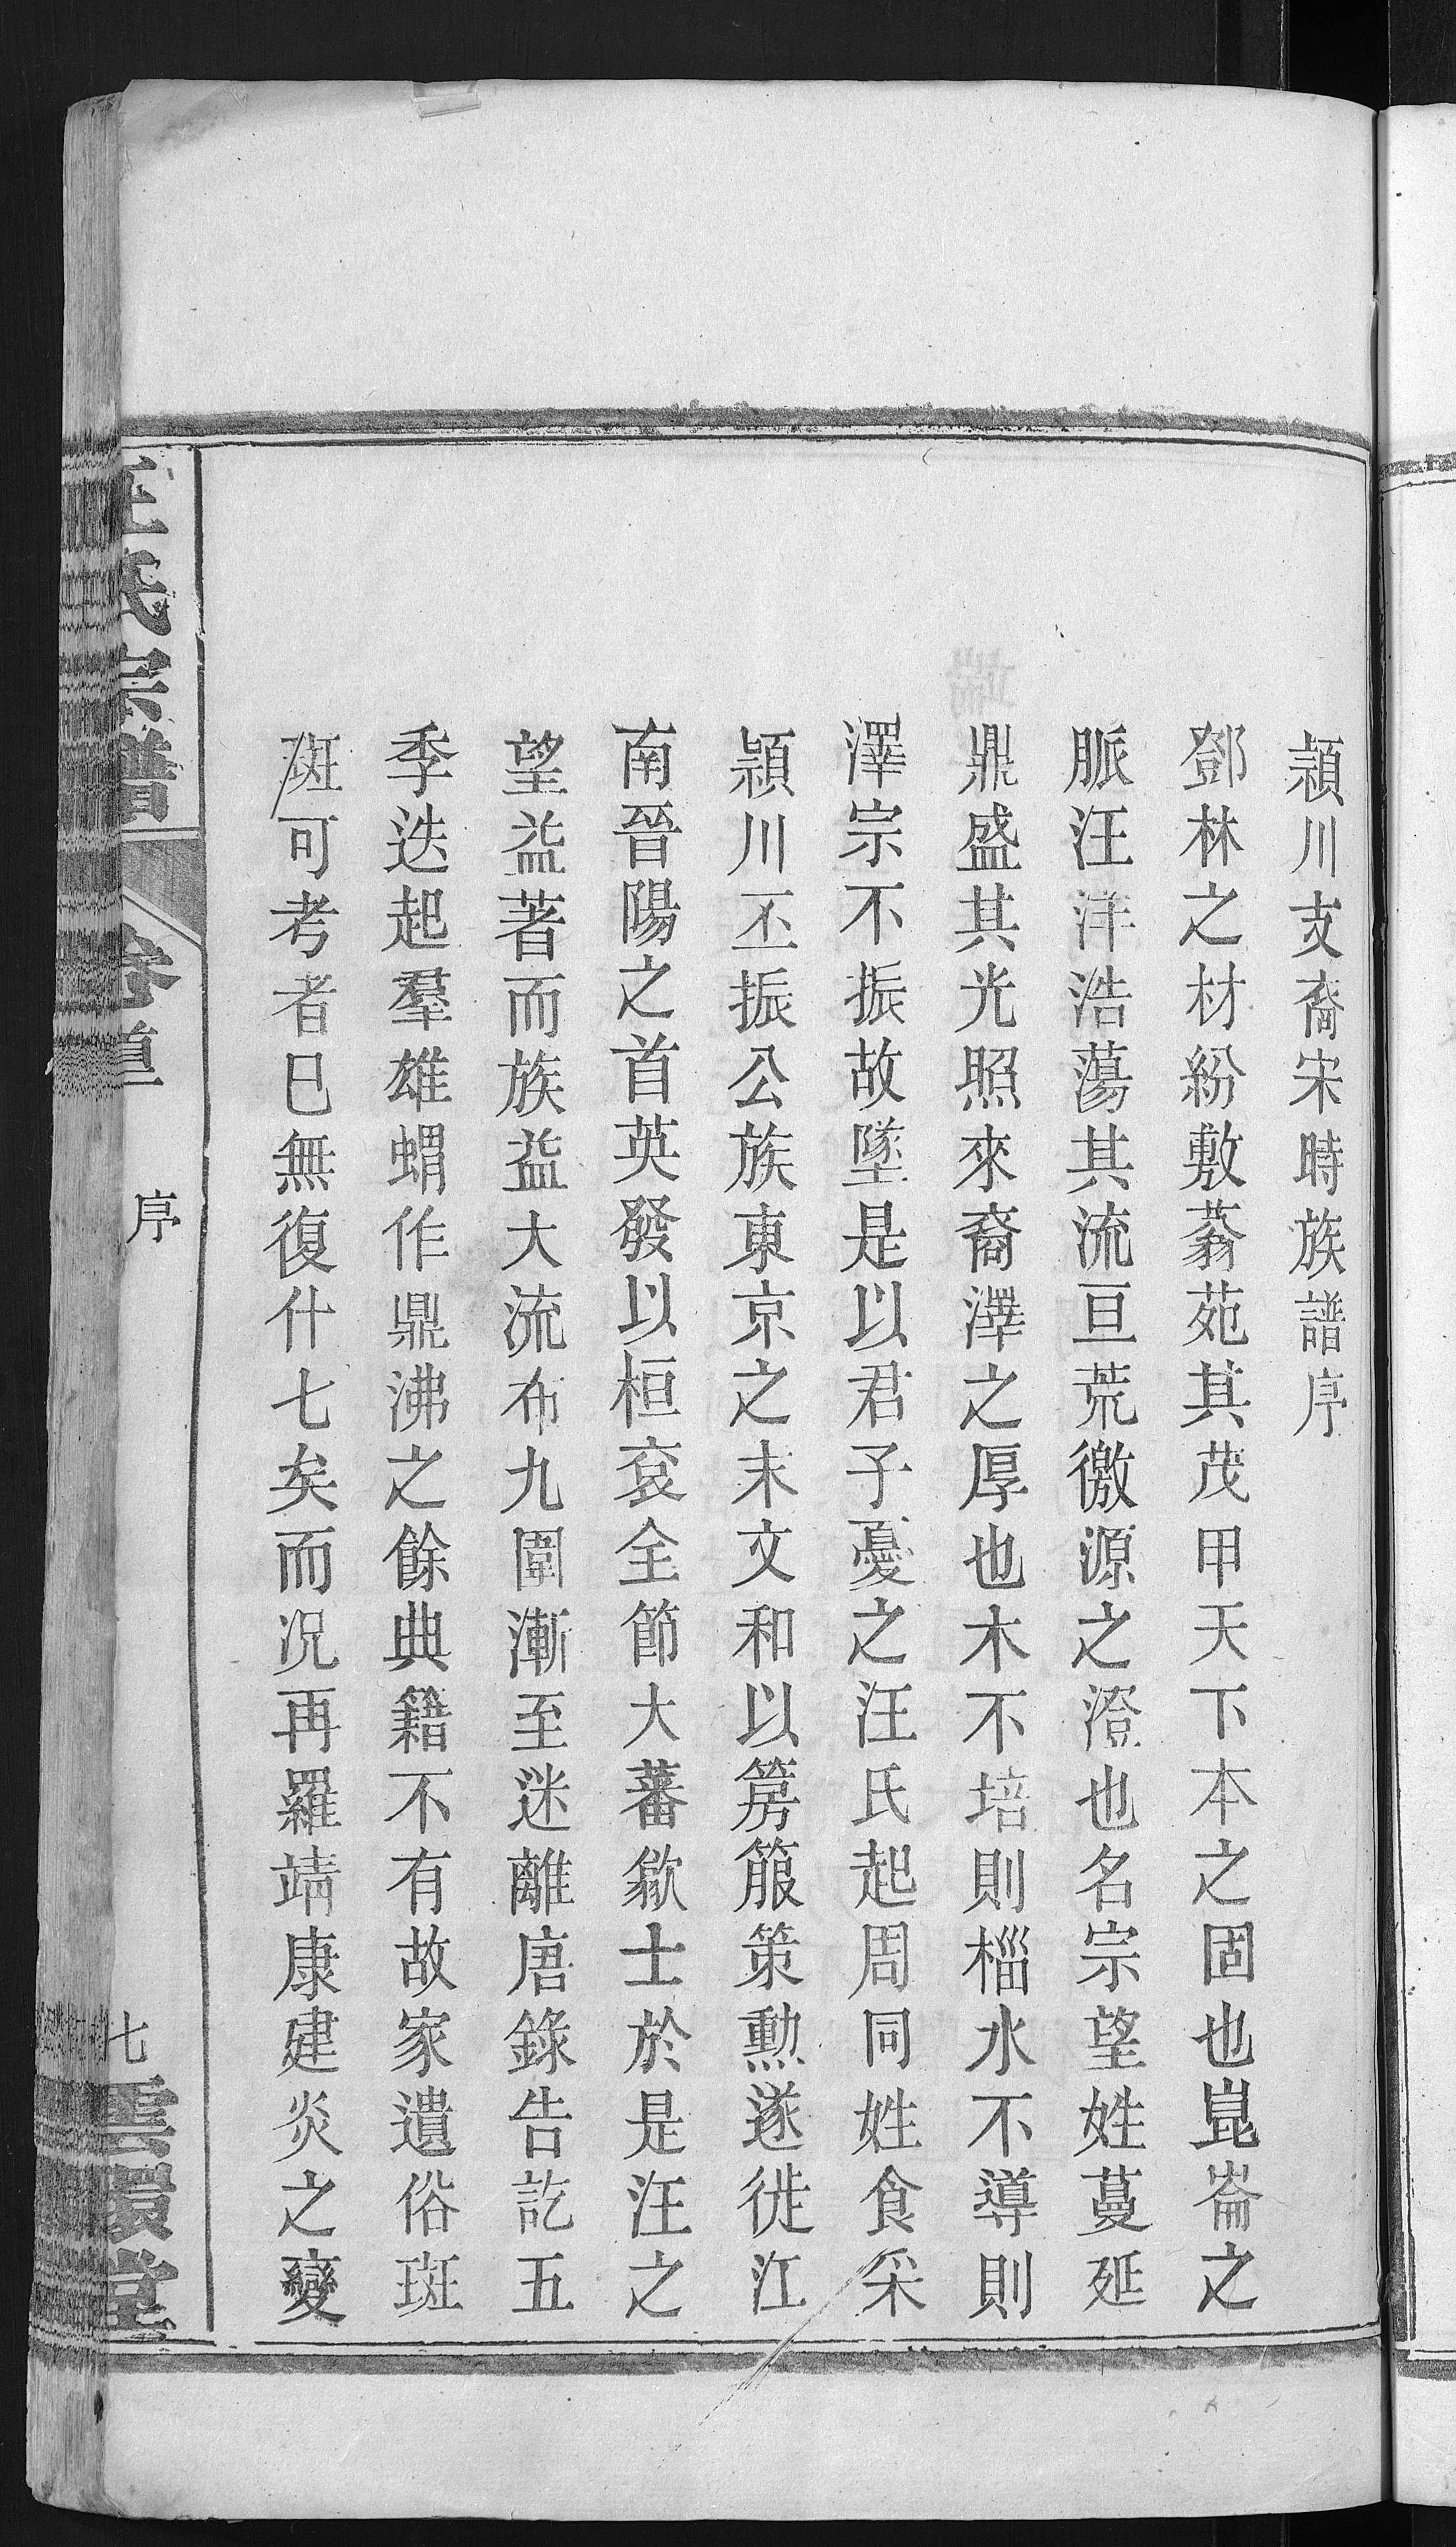 頴川支裔宋時族譜序
鄧林之材紛敷蓊苑其茂甲天下本之固也崑崙之
脈汪洋浩蕩其流亘荒徼源之澄也名宗望姓蔓延
鼎盛其光照來裔澤之厚也木不培則榴水不導則
澤宗不振故墜是以君子憂之汪氏起周同姓食采
頴川丕振公族東京之末文和以篣箙策勲遂徙江
南晉陽之首英發以桓袞全節大蕃歙士於是汪之
望益著而族益大流布九圍漸至迷離唐錄告訖五
季迭起羣雄蝟作鼎沸之餘典籍不有故家遺俗斑
斑可考者巳無復什七矣而况再羅靖康建炎之變
汪氏宗譜
卷首
序
七
雲環堂